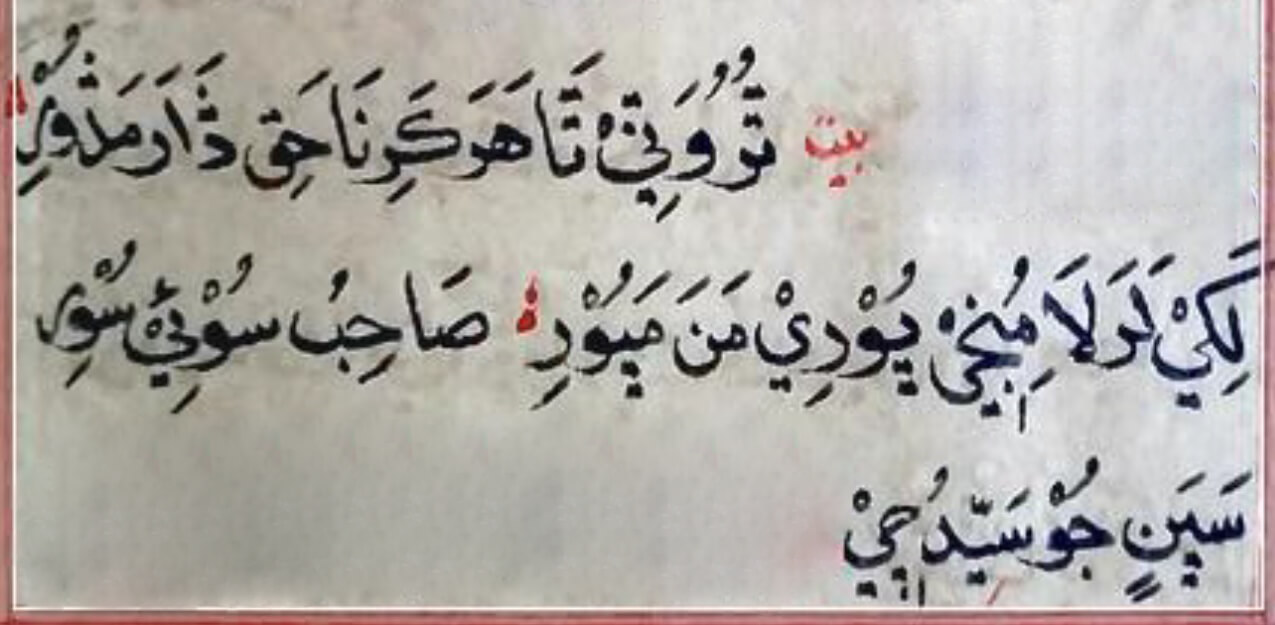 بيت تُرُ وَنِيْ تَا هَرَ كَرِ نَاحَقِ ذَارَ مَذْوُرِ
لِکِيْ لَرَ لَا مُنجِيْ پُوْرِيْ مَنَ مَپُوْرِ صَاحِبُ سُوْئِيْ سُوْرِ
سَپَنٍ جُوْ سَيّدُ چِيْ